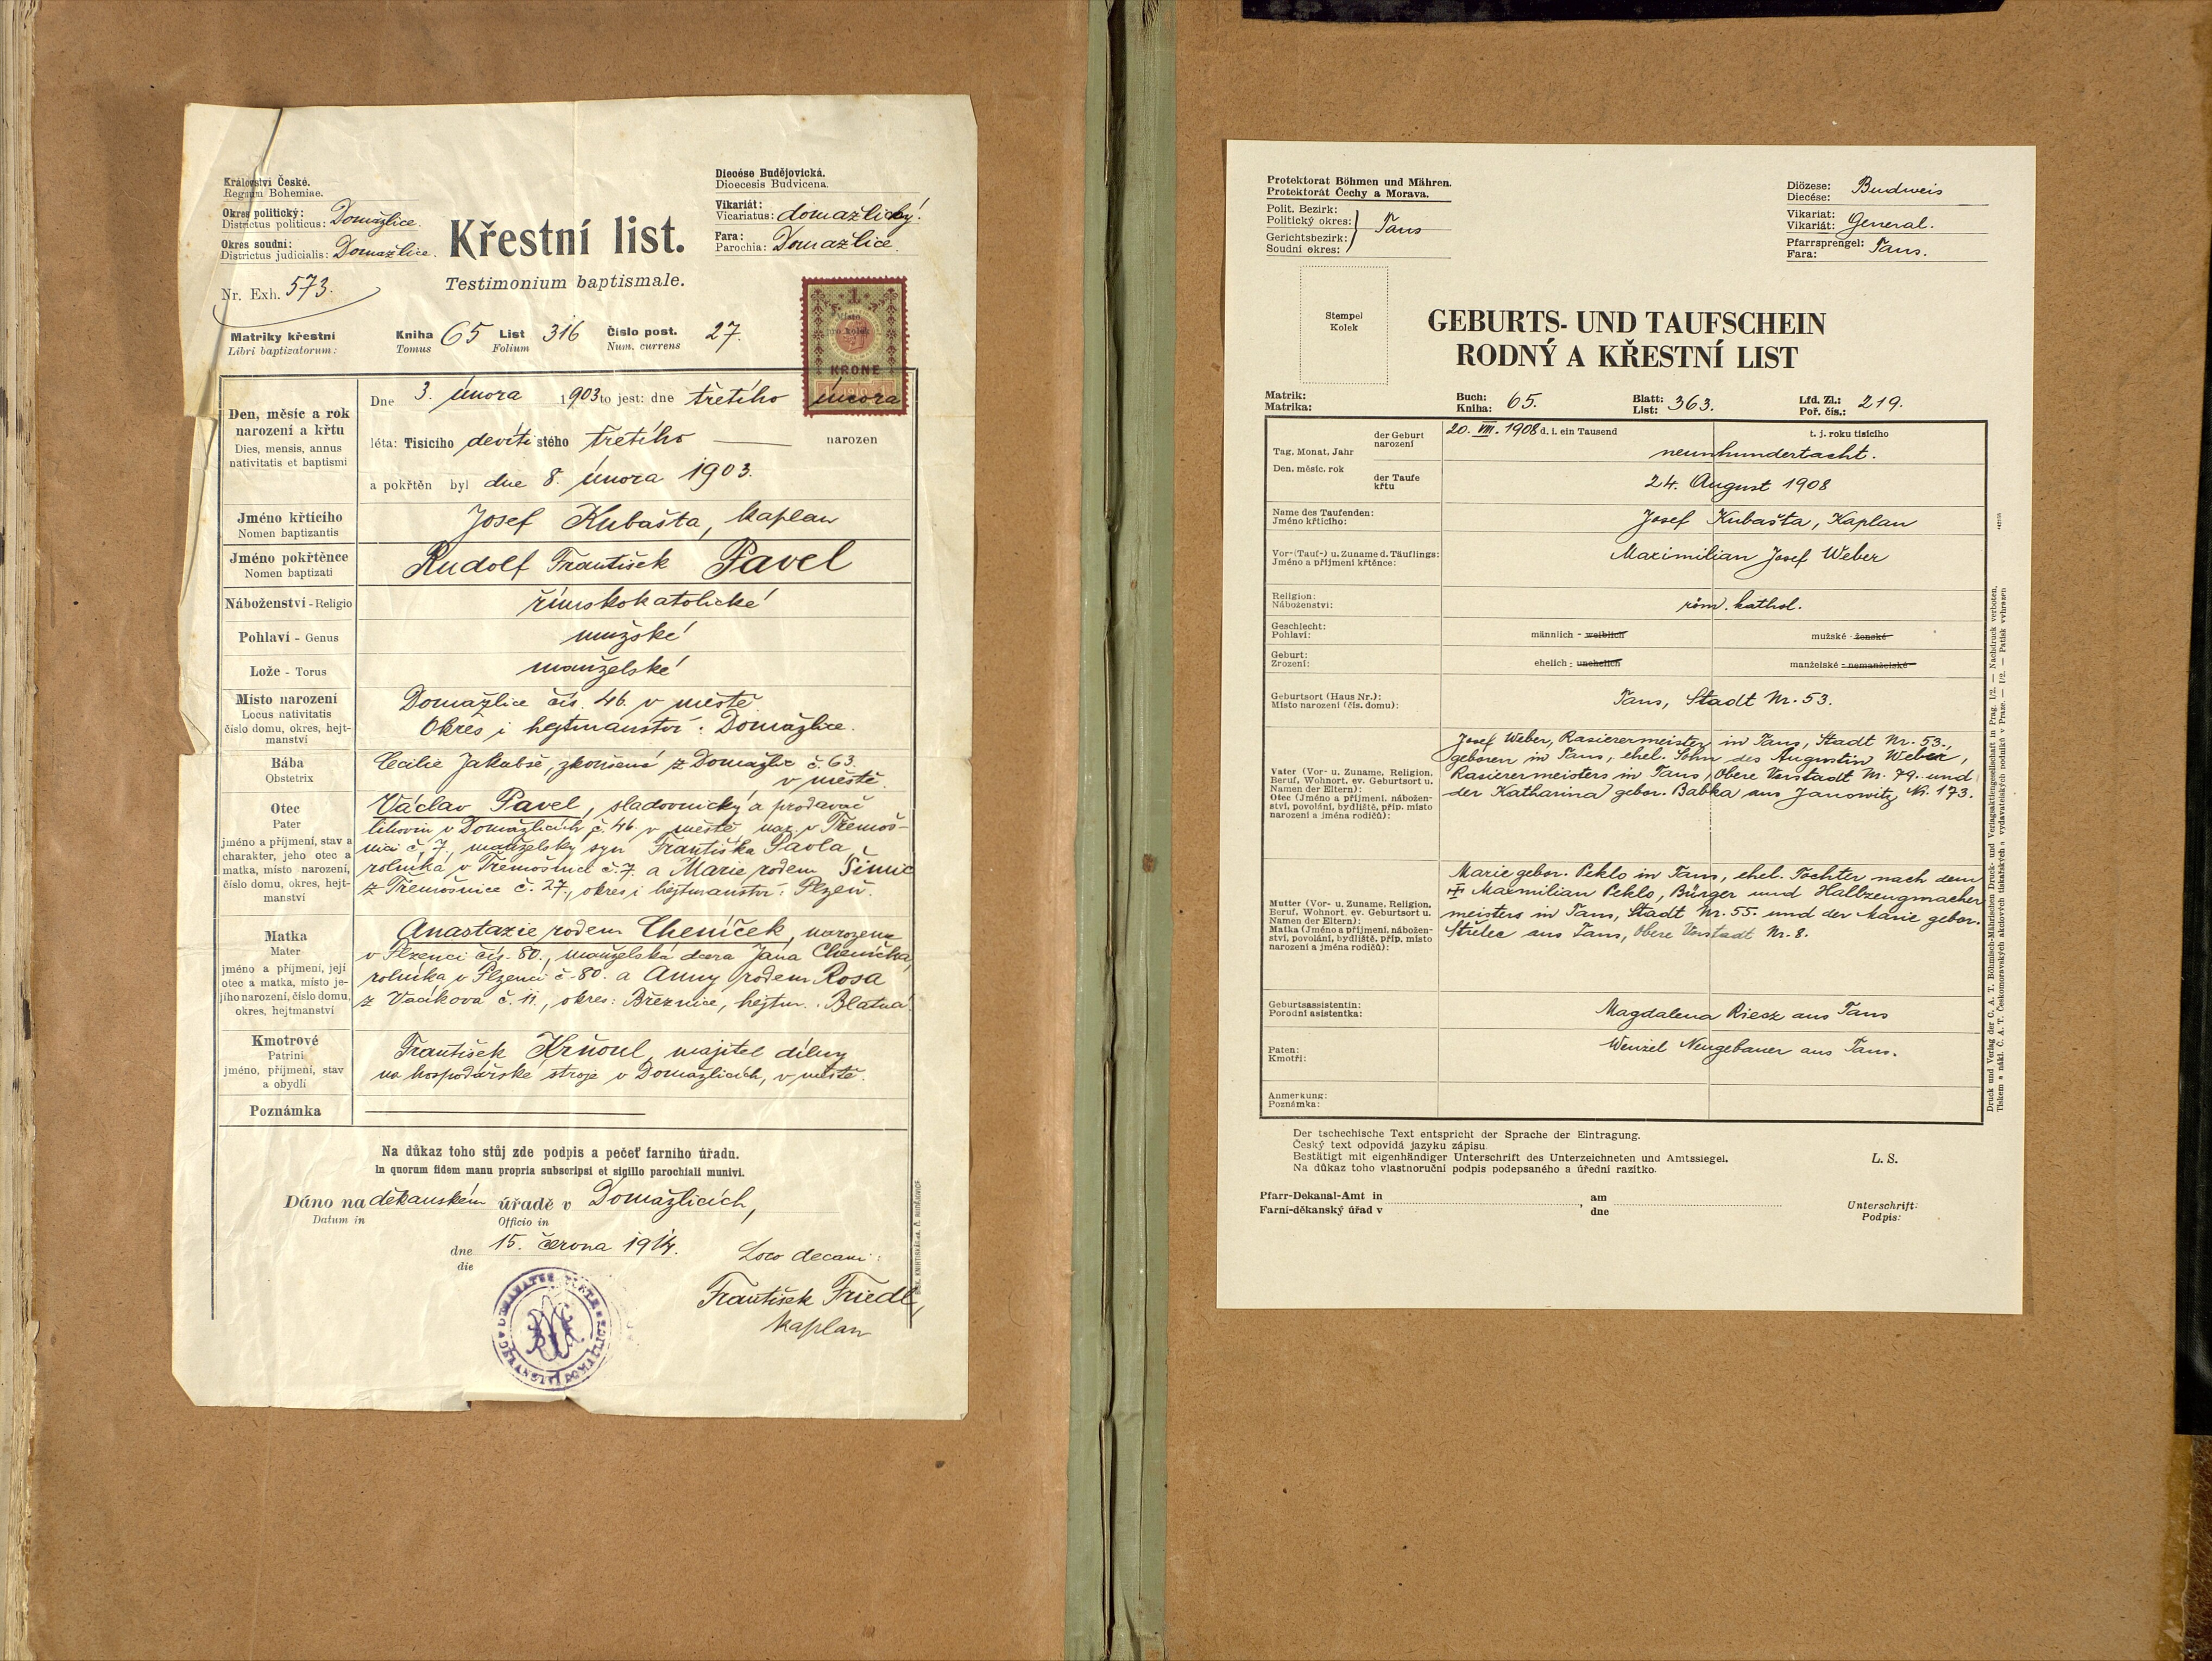 Království České.
Regnum Bohemiae.
Okres politický:
Districtus politicus: Domažlice.
Okres soudní:
Districtus judicialis: Domažlice.
Nr. Exh. 573.
Křestní list.
Testimonium baptismale.
Diecése Budějovická.
Dioecesis Budvicena.
Vikariát:
Vicariatus: domažlický.
Fara:
Parochia: Domažlice.
1
Místo
pro kolek
KRONE
Matriky křestní Kniha 65 List 316 Číslo post. 27.
Libri baptizatorum: Tomus Folium Num. currens
Den, měsíc a rok
narození a křtu
Dies, mensis, annus
nativitatis et baptismi
Dne 3. února 1903 to jest: dne třetího února
léta: Tisícího devíti stého třetího — narozen
a pokřtěn byl dne 8. února 1903.
Jméno křtícího
Nomen baptizantis
Josef Kubašta, kaplan
Jméno pokřtěnce
Nomen baptizati
Rudolf František Pavel
Náboženství - Religio
římskokatolické
Pohlaví - Genus
mužské
Lože - Torus
manželské
Místo narození
Locus nativitatis
číslo domu, okres, hejt-
manství
Domažlice čís. 46. v městě.
Okres i hejtmanství: Domažlice.
Bába
Obstetrix
Cecilie Jakubše, zkoušená z Domažlic č. 63.
v městě.
Otec
Pater
jméno a příjmení, stav a
charakter, jeho otec a
matka, místo narození,
číslo domu, okres, hejt-
manství
Václav Pavel, sladovnický a prodavač
lihovin v Domažlicích č. 46. v městě, nar. v Třemoš-
nici č. 7., manželský syn Františka Pavla,
rolníka v Třemošnici č. 7. a Marie rodem Šimic
z Třemošnice č. 27., okres i hejtmanství: Plzeň.
Matka
Mater
jméno a příjmení, její
otec a matka, místo je-
jího narození, číslo domu,
okres, hejtmanství
Anastazie rodem Cheníček, narozena
v Plzenci čís. 80., manželská dcera Jana Cheníčka,
rolníka v Plzenci č. 80. a Anny rodem Rosa
z Vacíkova č. 11., okres: Březnice, hejtm.: Blatná.
Kmotrové
Patrini
jméno, příjmení, stav
a obydlí
František Krňoul, majitel dílny
na hospodářské stroje v Domažlicích, v městě.
Poznámka
Na důkaz toho stůj zde podpis a pečeť farního úřadu.
In quorum fidem manu propria subscripsi et sigillo parochiali munivi.
Dáno na děkanském úřadě v Domažlicích,
Datum in Officio in
dne 15. června 1914.
die
Loco decani:
František Friedl,
kaplan
Protektorat Böhmen und Mähren.
Protektorát Čechy a Morava.
Polit. Bezirk:
Politický okres:
Gerichtsbezirk:
Soudní okres:
Taus
Diözese:
Diecése: Budweis
Vikariat:
Vikariát: General.
Pfarrsprengel:
Fara: Taus.
Stempel
Kolek
GEBURTS- UND TAUFSCHEIN
RODNÝ A KŘESTNÍ LIST
Matrik: Buch: 65. Blatt: 363. Lfd. Zl.: 219.
Matrika: Kniha: List: Poř. čís.:
Tag. Monat, Jahr
Den, měsíc, rok
der Geburt
narození
20. VIII. 1908 d. i. ein Tausend t. j. roku tisícího
neunhundertacht.
der Taufe
křtu
24. August 1908
Name des Taufenden:
Jméno křtícího:
Josef Kubašta, Kaplan
Vor-(Tauf-) u. Zuname d. Täuflings:
Jméno a příjmení křtěnce:
Maximilian Josef Weber
Religion:
Náboženství:
röm. kathol.
Geschlecht:
Pohlaví:
männlich - weiblich mužské - ženské
Geburt:
Zrození:
ehelich - unehelich manželské - nemanželské
Geburtsort (Haus Nr.):
Místo narození (čís. domu):
Taus, Stadt Nr. 53.
Vater (Vor- u. Zuname, Religion,
Beruf, Wohnort, ev. Geburtsort u.
Namen der Eltern):
Otec (Jméno a příjmení, nábožen-
ství, povolání, bydliště, příp. místo
narození a jména rodičů):
Josef Weber, Rasierermeister in Taus, Stadt Nr. 53.,
geboren in Taus, ehel. Sohn des Augustin Weber,
Rasierermeisters in Taus, Obere Vorstadt Nr. 79. und
der Katharina gebor. Babka aus Janowitz Nr. 173.
Mutter (Vor- u. Zuname, Religion,
Beruf, Wohnort, ev. Geburtsort u.
Namen der Eltern):
Matka (Jméno a příjmení, nábožen-
ství, povolání, bydliště, příp. místo
narození a jména rodičů):
Marie gebor. Peklo in Taus, ehel. Tochter nach dem
Maxmilian Peklo, Bürger und Hallzeugmacher
meisters in Taus, Stadt Nr. 55. und der Marie gebor.
Střelec aus Taus, Obere Vorstadt Nr. 8.
Geburtsassistentin:
Porodní asistentka:
Magdalena Riesz aus Taus
Paten:
Kmotři:
Wenzel Neugebauer aus Taus.
Anmerkung:
Poznámka:
Der tschechische Text entspricht der Sprache der Eintragung.
Český text odpovídá jazyku zápisu.
Bestätigt mit eigenhändiger Unterschrift des Unterzeichneten und Amtssiegel.
Na důkaz toho vlastnoruční podpis podepsaného a úřední razítko.
L. S.
Pfarr-Dekanal-Amt in am
Farní-děkanský úřad v , dne
Unterschrift:
Podpis:
Druck und Verlag der C. A. T. Böhmisch-Mährischen Druck- und Verlagsaktiengesellschaft in Prag. I/2. — Nachdruck verboten.
Tiskem a nákl. Č. A. T. Českomoravských akciových tiskařských a vydavatelských podniků v Praze. — I/2. — Patisk vyhrazen